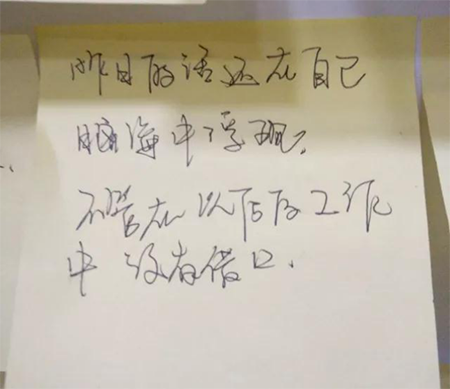 昨日的话还在自己
脑海中浮现.
不管在以后的工作
中 没有借口.